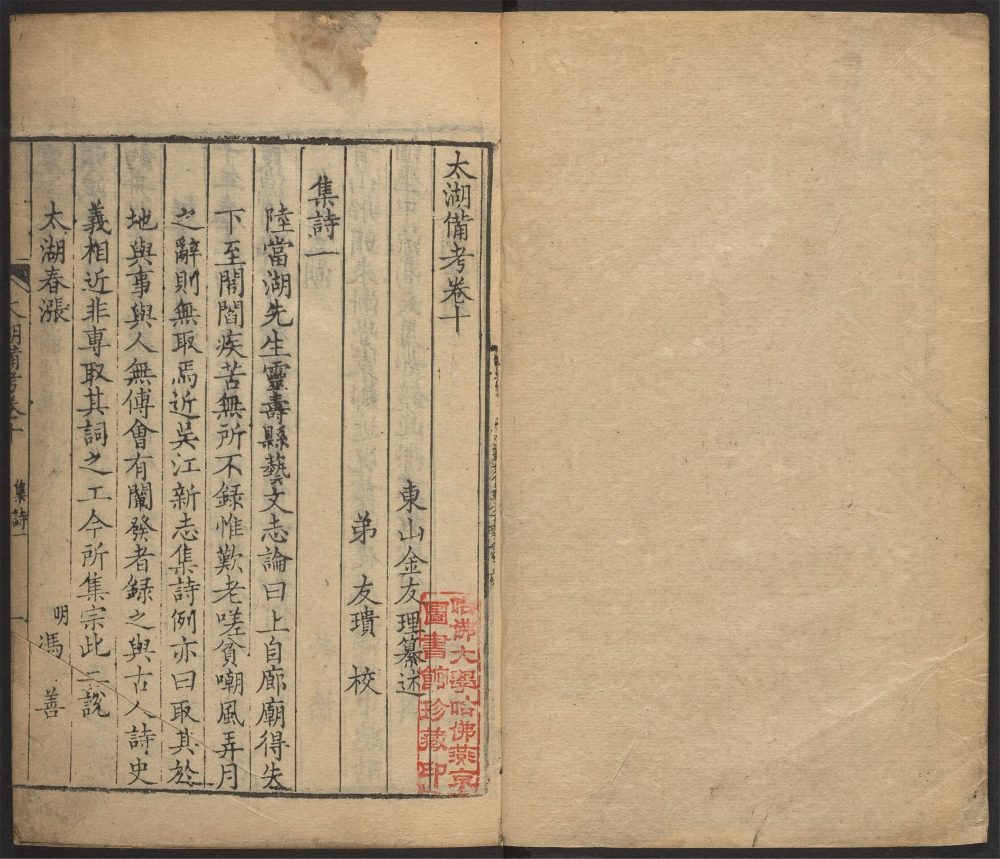 太湖備考卷十
東山金友理纂述
弟友瓄校
集詩一
陸當湖先生靈壽縣藝文志論曰上自廊廟得失
下至閭閻疾苦無所不錄惟歎老嗟貧嘲風弄月
之辭則無取焉近吳江新志集詩例亦曰取其於
地與事與人無傅會有闡發者録之與古人詩史
義相近非專取其詞之工今所集宗此二說
太湖春漲 明馮善
太湖備考卷十 集詩一 一
哈佛大學哈佛燕京
圖書館珍藏印